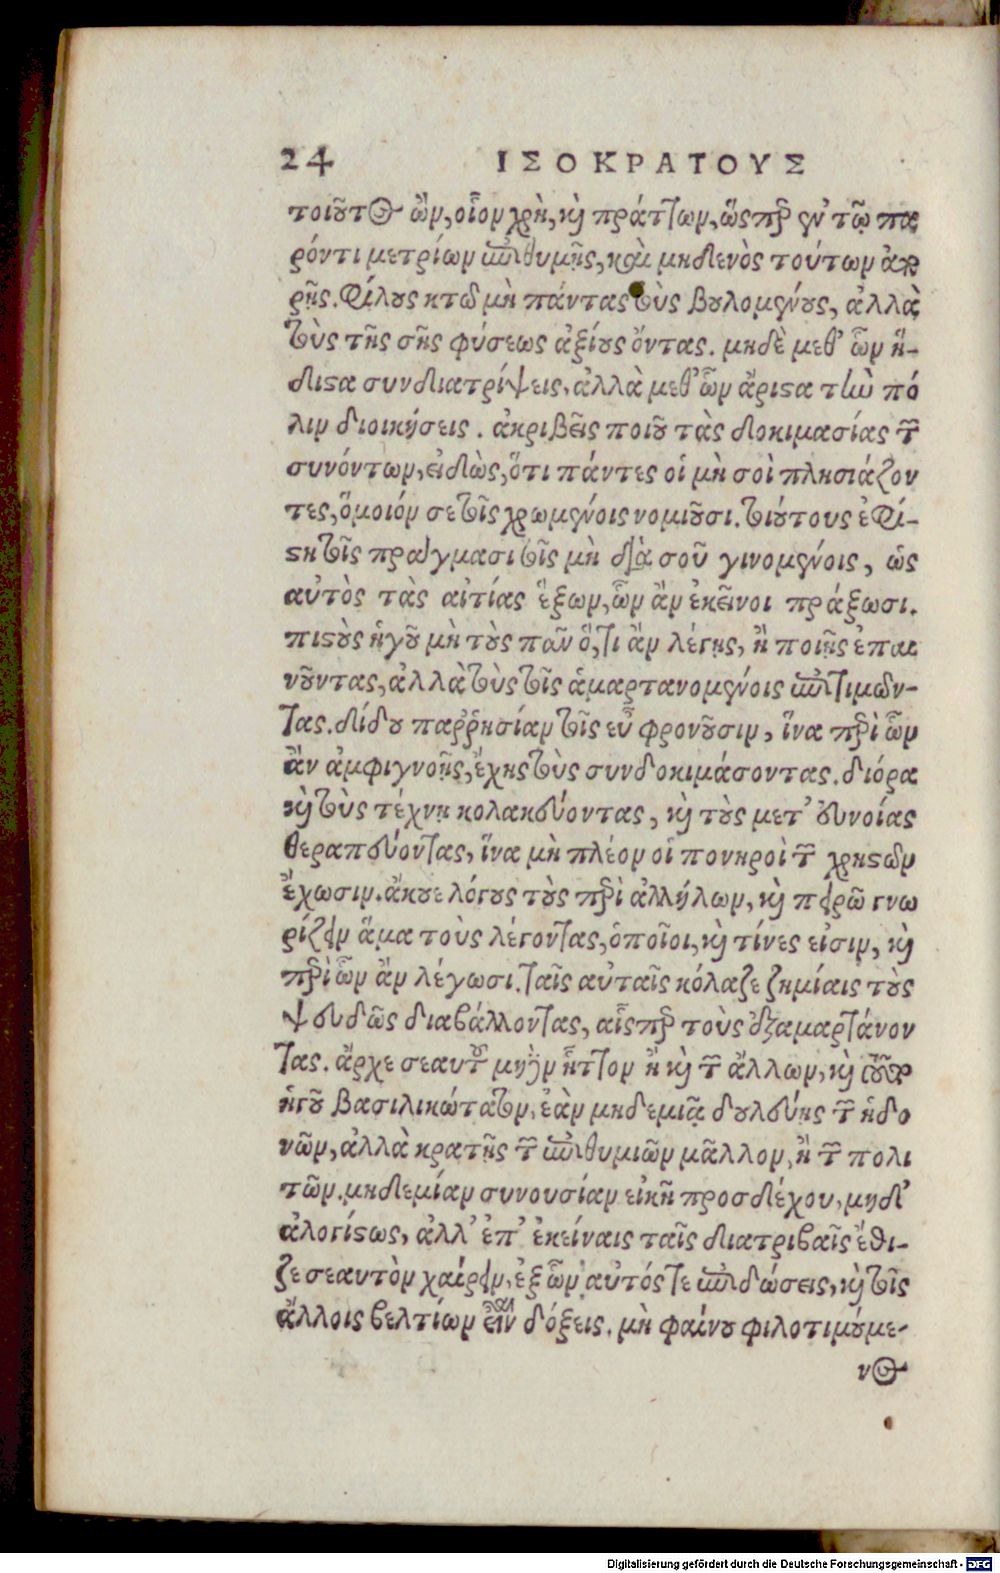 24 ΙΣΟΚΡΑΤΟΥΣ
τοιοῦτος ὢν, οἷον χρὴ, καὶ πράττων, ὥσπερ ἐν τῷ πα
ρόντι μετρίων ἐπιθυμῇς, καὶ μηδενὸς τούτων ἁρ
ρῇς. φίλους κτῶ μὴ πάντας τοὺς βουλομένους, ἀλλὰ
τοὺς τῆς σῆς φύσεως ἀξίους ὄντας. μηδὲ μεθ’ ὧν ἥ-
διστα συνδιατρίψεις, ἀλλὰ μεθ’ ὧν ἄριστα τὴν πό
λιν διοικήσεις. ἀκριβεῖς ποιοῦ τὰς δοκιμασίας τῶν
συνόντων, εἰδὼς, ὅτι πάντες οἱ μὴ σοὶ πλησιάζον
τες, ὅμοιόν σε τοῖς χρωμένοις νομιοῦσι. τοιούτους ἐφί-
στη τοῖς πράγμασι τοῖς μὴ διὰ σοῦ γινομένοις, ὡς
αὐτὸς τὰς αἰτίας ἕξων, ὧν ἂν ἐκεῖνοι πράξωσι.
πιστοὺς ἡγοῦ μὴ τοὺς πᾶν ὅ,τι ἂν λέγῃς, ἢ ποιῇς ἐπαι
νοῦντας, ἀλλὰ τοὺς τοῖς ἁμαρτανομένοις ἐπιτιμῶν-
τας. δίδου παῤῥησίαν τοῖς εὖ φρονοῦσιν, ἵνα περὶ ὧν
ἂν ἀμφιγνοῇς, ἔχῃς τοὺς συνδοκιμάσοντας. διόρα
καὶ τοὺς τέχνῃ κολακεύοντας, καὶ τοὺς μετ’ εὐνοίας
θεραπεύοντας, ἵνα μὴ πλέον οἱ πονηροὶ τῶν χρηστῶν
ἔχωσιν. ἄκουε λόγους τοὺς περὶ ἀλλήλων, καὶ πειρῶ γνω
ρίζειν ἅμα τοὺς λέγοντας, ὁποῖοι, καὶ τίνες εἰσιν, καὶ
περὶ ὧν ἂν λέγωσι. ταῖς αὐταῖς κόλαζε ζημίαις τοὺς
ψευδῶς διαβάλλοντας, αἷσπερ τοὺς ἐξαμαρτάνον
τας. ἄρχε σεαυτοῦ μηδὲν ἧττον ἢ καὶ τῶν ἄλλων, καὶ τοῦθ’
ἡγοῦ βασιλικώτατον, ἐὰν μηδεμιᾷ δουλεύῃς τῶν ἡδο
νῶν, ἀλλὰ κρατῇς τῶν ἐπιθυμιῶν μᾶλλον, ἢ τῶν πολι
τῶν. μηδεμίαν συνουσίαν εἰκῆ προσδέχου, μηδ’
ἀλογίστως, ἀλλ’ ἐπ’ ἐκείναις ταῖς διατριβαῖς ἔθι-
ζε σεαυτὸν χαίρειν, ἐξ ὧν αὐτός τε ἐπιδώσεις, καὶ τοῖς
ἄλλοις βελτίων εἶναι δόξεις. μὴ φαίνου φιλοτιμούμε-
νος
Digitalisierung gefördert durch die Deutsche Forschungsgemeinschaft - DFG